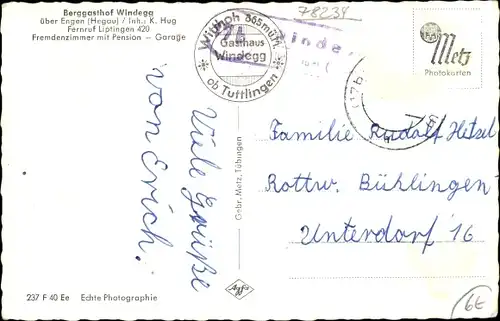 Berggasthof Windegg
über Engen (Hegau) / Inh.: K. Hug
Fernruf Liptingen 420
Fremdenzimmer mit Pension — Garage
Witthoh 865müM.
Gasthaus
Windegg
ob Tuttlingen
78234
Metz
Photokarten
Viele Grüße
von Erich.
Gebr. Metz, Tübingen
Familie Rudolf Hetsel
Rottw. Bühlingen
Unterdorf 16
237 F 40 Ee Echte Photographie
Agfa
6€